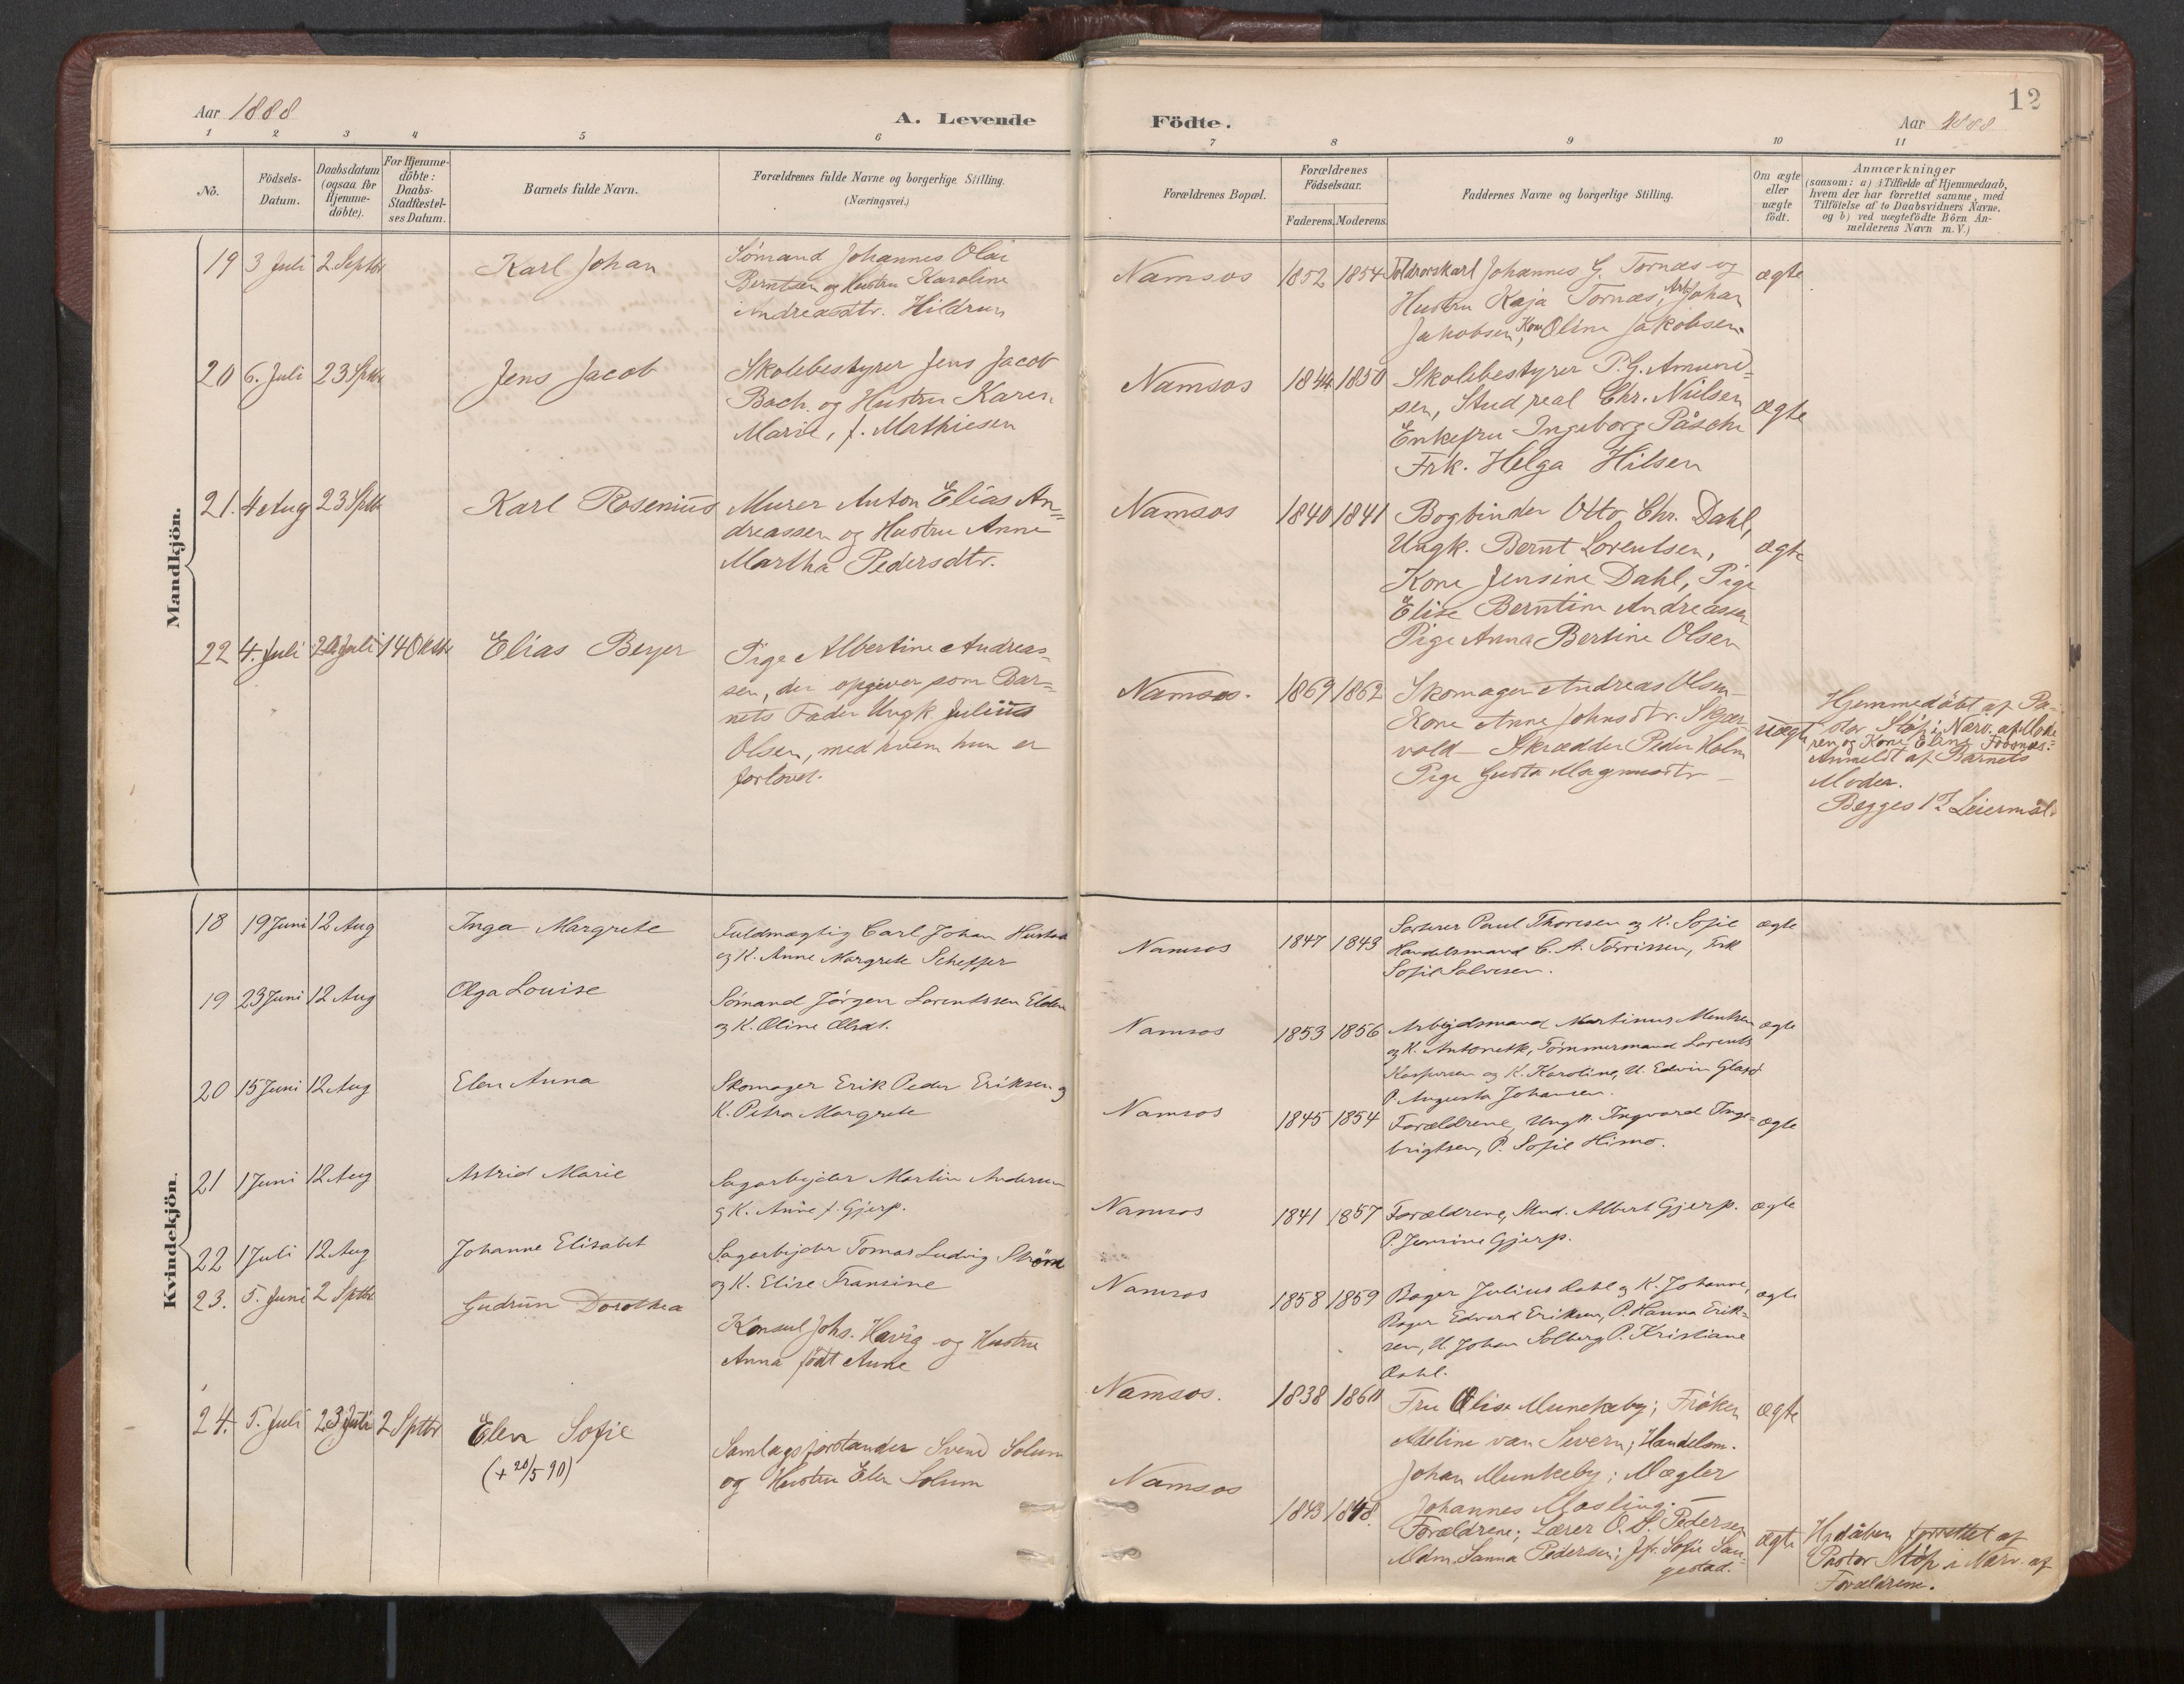 Aar 1888
A. Levende
1 2 3 4 5 6
Nö.
Födsels-
Datum.
Daabsdatum
(ogsaa for
Hjemme-
döbte).
For Hjemme-
döbte:
Daabs-
Stadfæstel-
ses Datum.
Barnets fulde Navn.
Forældrenes fulde Navne og borgerlige Stilling.
(Næringsvei.)
Mandkjön.
19 3 Juli 2 Septbr Karl Johan
Sömand Johannes Olai
Berntsen og Hustru Karoline
Andreasdtr. Hildrum
20 6. Juli 23 Sptbr Jens Jacob
Skolebestyrer Jens Jacob
Bach og Hustru Karen
Marie, f. Mathiesen
21. 4 Aug 23 Sptb Karl Rosenius
Murer Anton Elias An-
dreassen og Hustru Anne
Martha Pedersdtr.
22 4. Juli Juli 14 Oktb Elias Beyer
Pige Albertine Andreas-
sen, der opgiver som Bar-
nets Fader Ungk. Julius
Olsen, med hvem hun er
forlovet.
Kvindekjön.
18 19 Juni 12 Aug Inga Margrete
Fuldmægtig Carl Johan Hustad
og K. Anne Margrete Scheffer
19 23 Juni 12 Aug Olga Louise
Sömand Jörgen Lorentssen Elden
og K. Oline Olsdt.
20 15 Juni 12 Aug Elen Anna
Skomager Erik Peder Eriksen og
K. Petra Margrete
21 1 Juni 12 Aug Astrid Marie
Sagarbejder Martin Andersen
og K. Anne f. Gjerp.
22 1 Juli 12 Aug Johanne Elisabet
Sagarbejder Tomas Ludvig
og K. Elise Fransine
23. 5. Juni 2 Sptbr Gudrun Dorothea
Konsul Johs. Havig og Hustru
Anna födt Aune
24. 5. Juli 23 Juli 2 Sptbr Elen Sofie
(+ 20/5 90)
Samlagsforstander Svend Solum
og Hustru Elen Solum
12
Födte.
Aar 1888
7 8 9 10 11
Forældrenes Bopæl.
Forældrenes
Födselsaar.
Faderens. Moderens.
Faddernes Navne og borgerlige Stilling.
Om ægte
eller
uægte
födt.
Anmærkninger
(saasom: a) i Tilfælde af Hjemmedaab,
hvem der har forrettet samme, med
Tilföielse af to Daabsvidners Navne,
og b) ved uægtefödte Börn An-
melderens Navn m. V.)
Namsos 1852 1854 Toldrorskarl Johannes G. Tornæs og ægte
Hustru Kaja Tornæs, Arb. Johan
Jakobsen, Kone Oline Jakobsen.
Namsos 1844 1850 Skolebestyrer P. G. Amund-
sen, Stud real Chr. Nielsen ægte
Enkefru Ingeborg Påsche
Frk. Helga Hilsen
Namsos 1840 1841 Bogbinder Otto Chr. Dahl,
Ungk. Bernt Lorentsen, ægte
Kone Jensine Dahl, Pige
Elise Berntine Andreassen
Pige Anna Bertine Olsen
Namsos. 1869 1862 Skomager Andreas Olsen
Kone Anne Johnsdtr. Skjær-
vold Skrædder Peder Holm uægte
Pige Gusta Magnusdtr
Hjemmedöbt af Pa-
stor Stöp i Nærv. af Mode
ren og Kone Eline
Anmeldt af Barnets
Moder.
Begges 1ste Leiermål.
Namsos 1847 1843 Sorterer Paul Thoresen og K. Sofie ægte
Handelsmand C. A. Törrissen, Frk
Sofie Salvesen.
Namsos 1853 1856 Arbejdsmand Martinus ægte
og K. Antonette, Tömmermand Lorents
Kaspersen og K. Karoline, U. Edvin
P. Augusta Johansen.
Namsos 1845 1854 Forældrene, Ungk. Ingvard Inge- ægte
brigtsen, P. Sofie Himo.
Namsos 1841 1857 Forældrene, Stud. Albert Gjerp. ægte
P. Jensine Gjerp.
Namsos 1858 1859 Bager Julius Dahl og K. Johanne, ægte
Bager Edvard Eriksen, P. Hanna Erik-
sen, U. Johan Solberg, P. Kristiane
Dahl.
Namsos. 1838 1860 Fru Elise Munkeby; Fröken ægte
Adeline van Severn; Handelsm.
Johan Munkeby; Mægler
Johannes Mosling.
Namsos 1843 1848. Forældrene; Lærer O. S. Pedersen ægte
Mdm. Sanna Pedersen; Jfr. Sofie San-
gestad.
Hjdåben forrettet af
Pastor Stöp i Nærv. af
Forældrene.